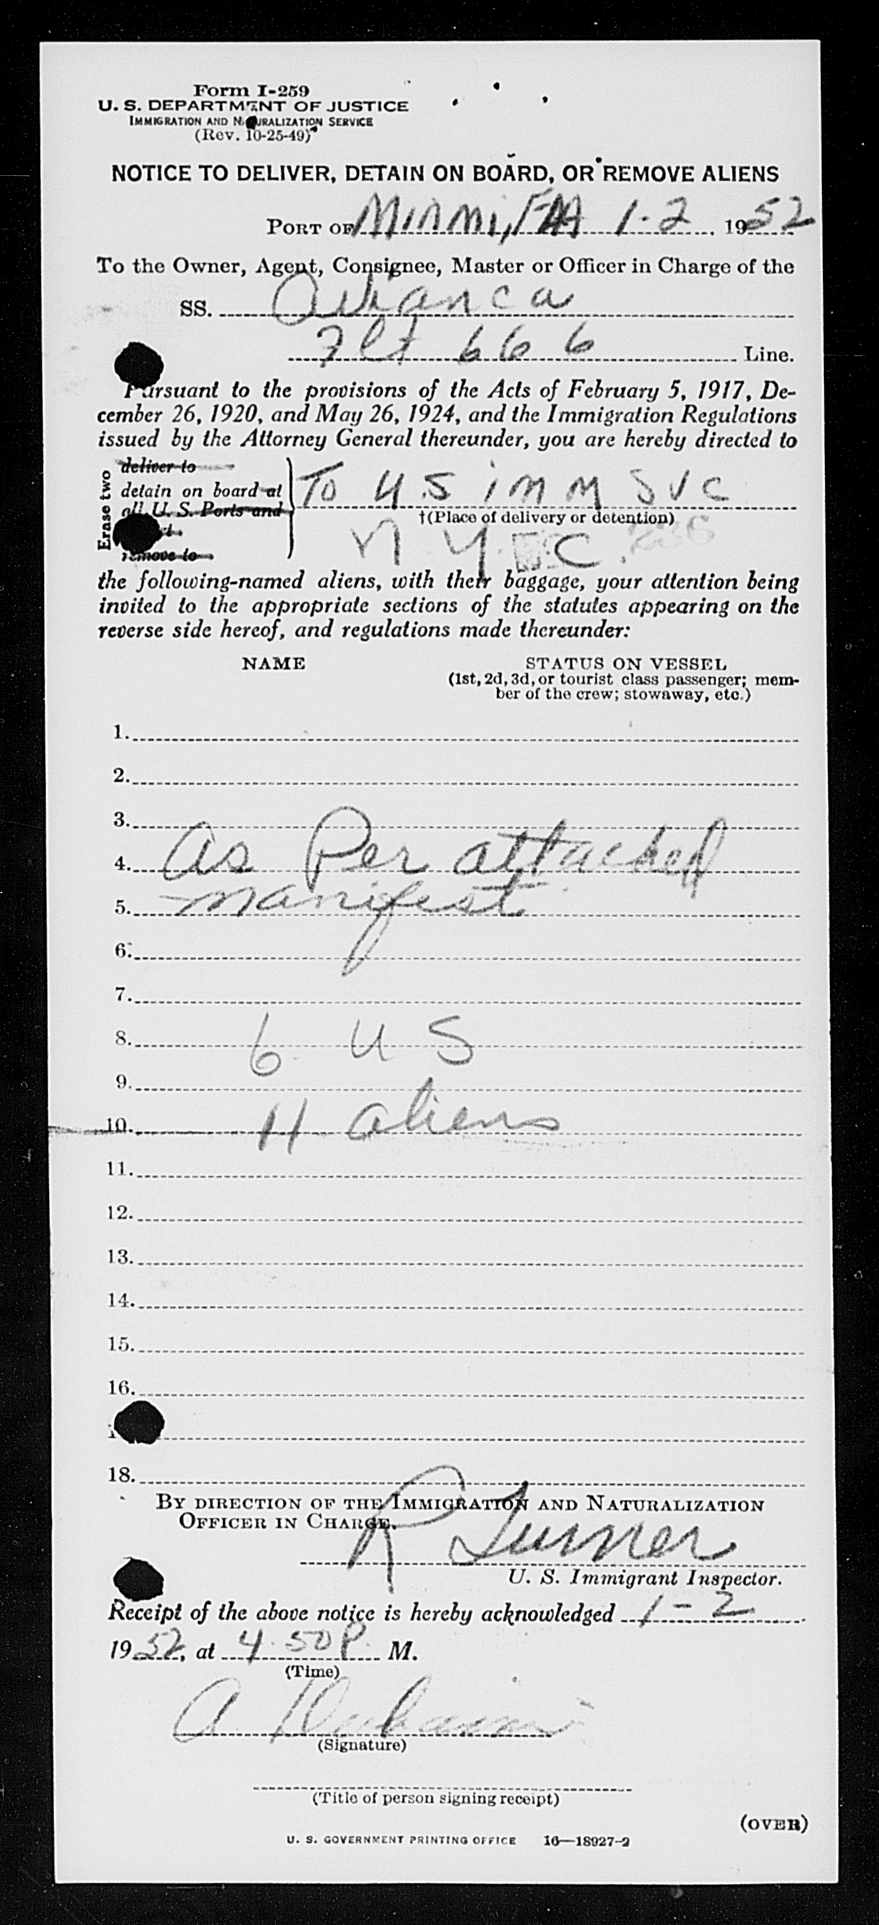 Form I-259
U. S. DEPARTMENT OF JUSTICE
IMMIGRATION AND NATURALIZATION SERVICE
(Rev. 10-25-49)
NOTICE TO DELIVER, DETAIN ON BOARD, OR REMOVE ALIENS
PORT OF Miami, Fla 1-2, 1952
To the Owner, Agent, Consignee, Master or Officer in Charge of the
SS. Avianca
Flt 666 Line.
Pursuant to the provisions of the Acts of February 5, 1917, De-
cember 26, 1920, and May 26, 1924, and the Immigration Regulations
issued by the Attorney General thereunder, you are hereby directed to
Erase two
deliver to
detain on board at To U.S imm Svc
all U. S. Ports and †(Place of delivery or detention)
remove to N Y C
the following-named aliens, with their baggage, your attention being
invited to the appropriate sections of the statutes appearing on the
reverse side hereof, and regulations made thereunder:
NAME STATUS ON VESSEL
(1st, 2d, 3d, or tourist class passenger; mem-
ber of the crew; stowaway, etc.)
1.
2.
3.
4. As Per attached
5. manifest
6.
7.
8. 6 US
9.
10. 11 aliens
11.
12.
13.
14.
15.
16.
18.
BY DIRECTION OF THE IMMIGRATION AND NATURALIZATION
OFFICER IN CHARGE.
R Turner
U. S. Immigrant Inspector.
Receipt of the above notice is hereby acknowledged 1-2
1952, at 4.50 P. M.
(Time)
A
(Signature)
(Title of person signing receipt)
(OVER)
U. S. GOVERNMENT PRINTING OFFICE 16—18927-2